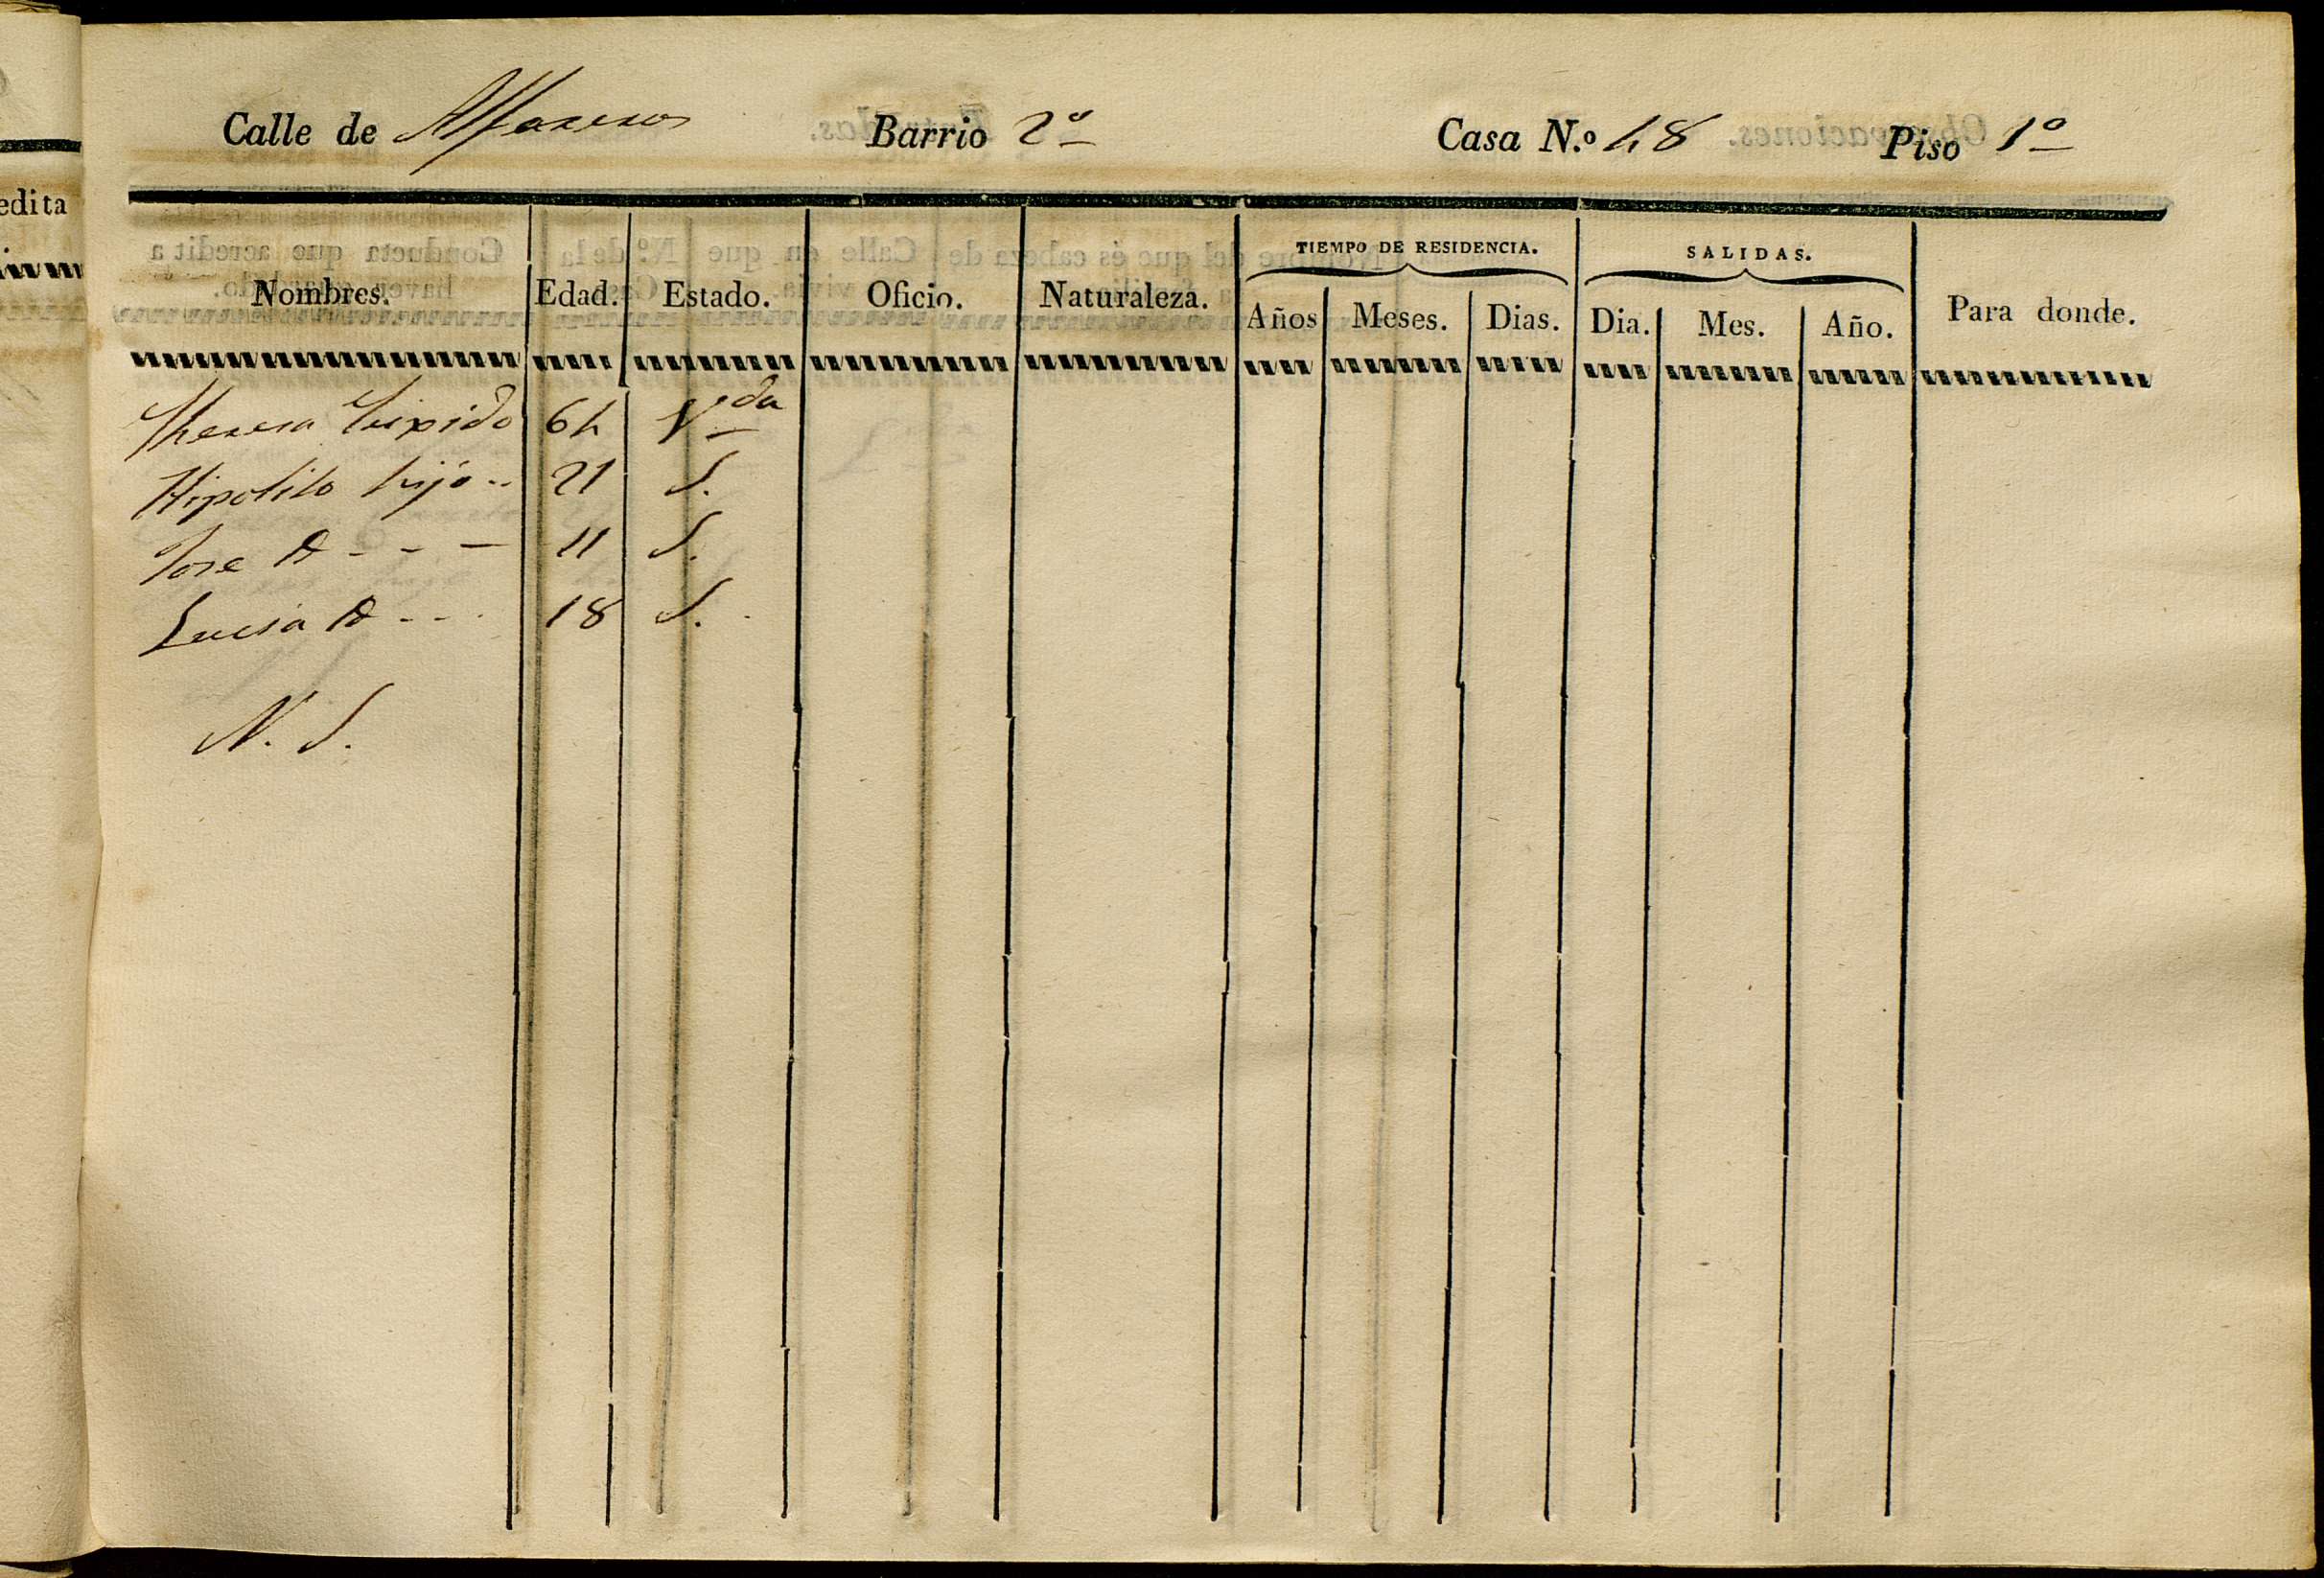 edita
Calle de Alfareros Barrio 2º Casa N.º 48 Piso 1º
TIEMPO DE RESIDENCIA. SALIDAS.
Nombres. Edad. Estado. Oficio. Naturaleza. Años Meses. Dias. Dia. Mes. Año. Para donde.
Theresa 64 V.da
Hipolito hijo 21 S.
Jose Yd 11 S.
Lucia Yd 18 S.
N. S.